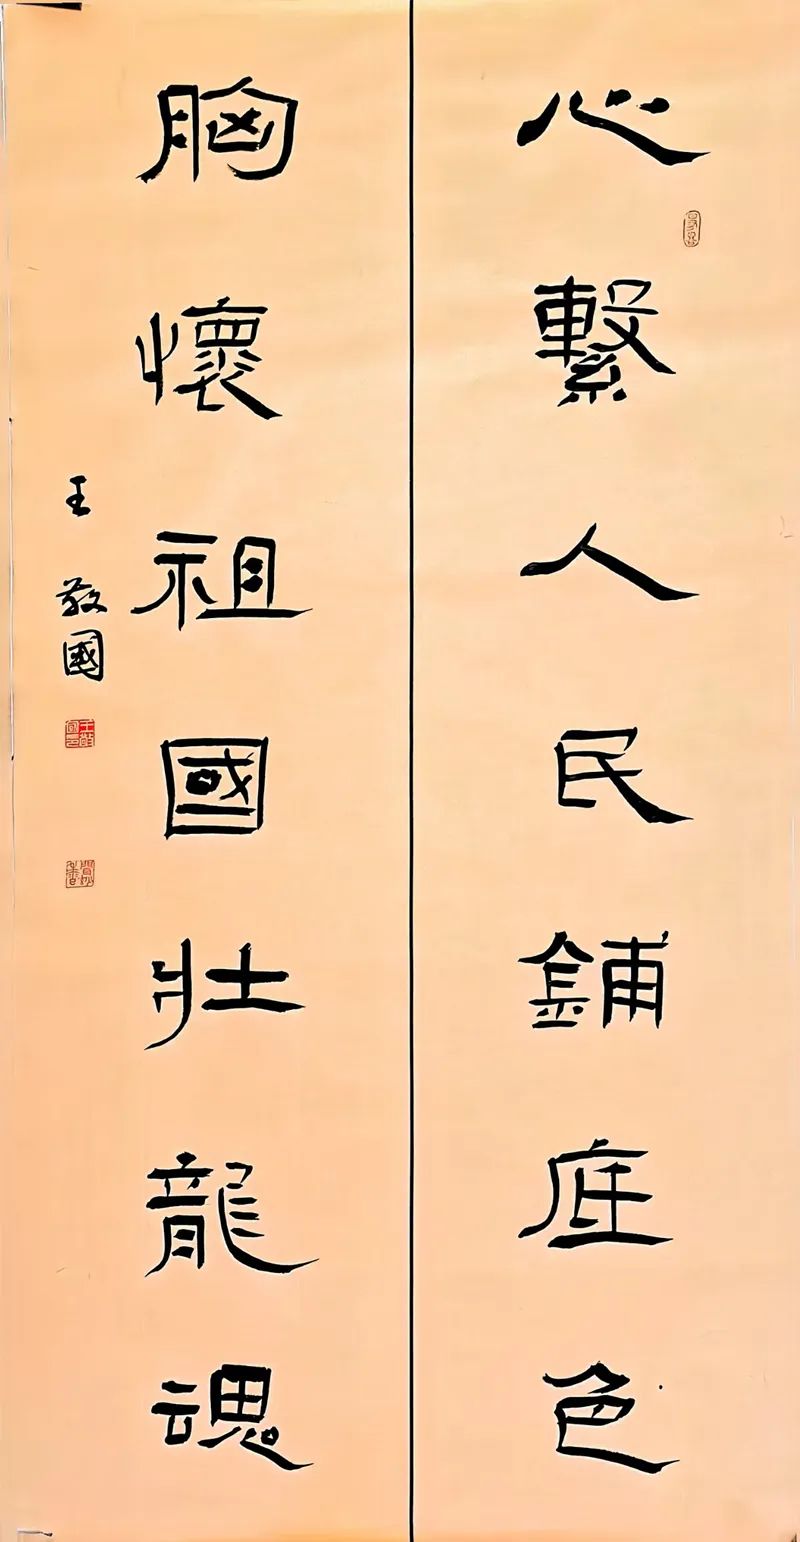 心繫人民鋪底色
胸懷祖國壯龍魂
王敬國